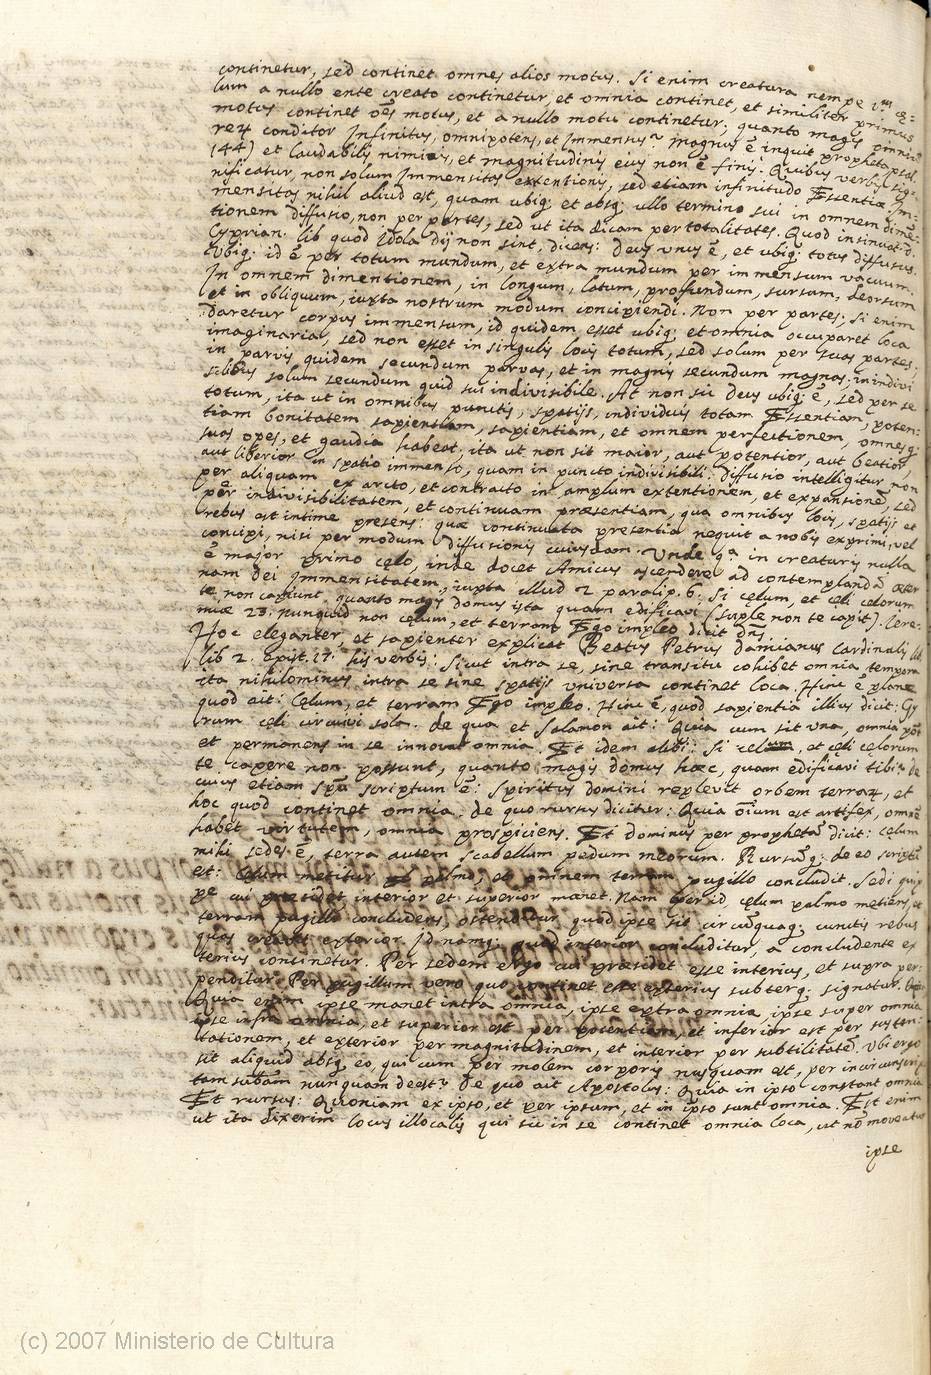 continetur, sed continet omnes alios motus. Si enim creatura nempe 1.m cę=
lum a nullo ente creato continetur, et omnia continet, et similiter primus
motus continet oēs motus, et a nullo motu continetur; quanto magis omniū
rerū conditor Infinitus, omnipotens, et Immensus? magnus ē inquit propheta psal
144) et laudabilis nimis, et magnitudinis eius non ē finis. Quibus verbis sig=
nificatur, non solum Immensitas extentionis, sed etiam infinitudo Essentiæ. Im=
mensitas nihil aliud est, quam ubiq; et absq; ullo termino sui in omnem dimē=
tionem diffusio, non per partes, sed ut ita dicam per totalitates. Quod insinuat D.
Cyprian. lib quod Idola dij non sint, dicens: Deus vnus ē, et ubiq; totus diffusus.
Vbiq; id ē per totum mundum, et extra mundum per immensum vacuum.
In omnem dimentionem, in longum, latum, profundum, sursum, deorsum
et in obliquum, iuxta nostrum modum concipiendi. Non per partes; Si enim
daretur corpus immensum, id quidem esset ubiq; et omnia occuparet loca
imaginaria, sed non esset in singulis locis totum, sed solum per suas partes,
in parvis quidem secundum parvas, et in magnis secundum magnas; in indivi
silibus solum secundum quid sui indivisibile. At non sic Deus ubiq; ē, sed per se
totum, ita ut in omnibus punctis, spatijs, individuis totam Essentiam, poten=
tiam bonitatem sapientiam, sapientiam, et omnem perfectionem, omnesq;
suas opes, et gaudia habeat, ita ut non sit maior, aut potentior, aut beatior,
aut liberior in spatio immenso, quam in puncto indivisibili. diffusio intelligitur non
per aliquam ex arcto, et contracto in amplum extentionem, et expansionē, sed
per indivisibilitatem, et continuam præsentiam, qua omnibus locis, spatijs et
rebus est intime presens: quæ continuata presentia nequit a nobis exprimi, vel
concipi, nisi per modum diffusionis cuiusdam. Vnde qa in creaturis nulla
ē major primo cęlo, inde docet Amicus ascendere ad contemplandā æter
nam dei Immensitatem, iuxta illud 2 paralip. 6. Si cęlum, et cęli cęlorum
te non capiunt quanto magis domus ista quam edificavi (suple non te capit). Iere=
miæ 23. nunquid non cęlum, et terram Ego impleo dicit dn̄s
Hoc eleganter, et sapienter explicat Beatus Petrus damianus Cardinalis
lib 2. epist. 17. his verbis: Sicut intra se, sine transitu cohibet omnia tempora
ita nihilominus intra se sine spatijs vniversa continet loca. Hinc ē plane
quod ait: Cęlum, et terram Ego impleo. Hinc ē, quod sapientia illius dicit: Gy
rum cęli circuivi sola. de qua et Salamon ait: Quia cum sit vna, omnia põt
et permanens in se innovat omnia. Et idem alibi: Si celum, et cęli cęlorum
te capere non possunt, quanto magis domus hæc, quam edificavi tibi? de
cuius etiam spū scriptum ē: Spiritus domini replevit orbem terrarū, et
hoc quod continet omnia: de quo rursus dicitur: Quia oīum est artifex, omnē
habet virtutem, omnia prospiciens. Et dominus per prophetā dicit: Cęlum
mihi sedes ē, terra autem scabellum pedum meorum. Rursūq; de eo scriptū
est: Cęlum metitur palmo, et omnem terram pugillo concludit. Sedi quip
pe cui præsidet interior et superior manet. Nam per id, cęlum palmo metiens, et
terram pugillo concludens, ostenditur, quod ipse sit circūquaq; cunctis rebus
quas creavit exterior. Id namq; quod interior concluditur, a concludente ex
terius continetur. Per sedem ergo cui præsidet esse interius, et supra per=
penditur. Per pugillum vero quo continet esse exterius subterq; signatur.
Quia enim ipse manet intra omnia, ipse extra omnia, ipse super omnia
ipse infra omnia, et superior est per potentiam, et inferior est per susten=
tationem, et exterior per magnitudinem, et interior per subtilitatē. Vbi ergo
sit aliquid absq; eo, qui cum per molem corporis nusquam est, per incircumscrip
tam subām nunquam deest? de quo ait Apostolus: Quia in ipso constant omnia
Et rursus: Quoniam ex ipso, et per ipsum, et in ipso sunt omnia. Est enim
ut ita dixerim locus illocalis qui sic in se continet omnia loca, ut nō moveatur
ipse
(c) 2007 Ministerio de Cultura